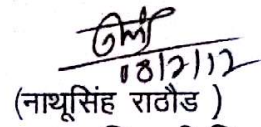 18/2/12
(नाथूसिंह राठौड )